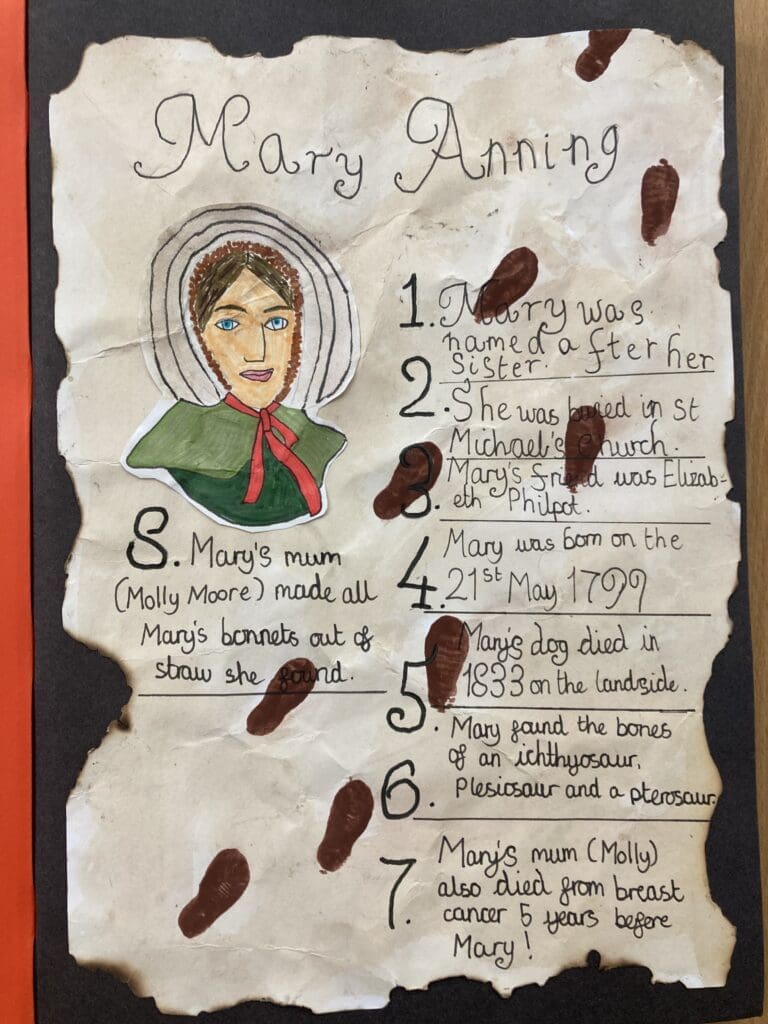 Mary Anning
1. Mary was
named after her
sister.
2. She was buried in St
Michael's Church.
3. Mary's friend was Elizab-
eth Philpot.
4. Mary was born on the
21st May 1799
5. Mary's dog died in
1833 on the landside.
6. Mary found the bones
of an ichthyosaur,
Plesiosaur and a pterosaur.
7. Mary's mum (Molly)
also died from breast
cancer 5 years before
Mary!
8. Mary's mum
(Molly Moore) made all
Mary's bonnets out of
straw she found.